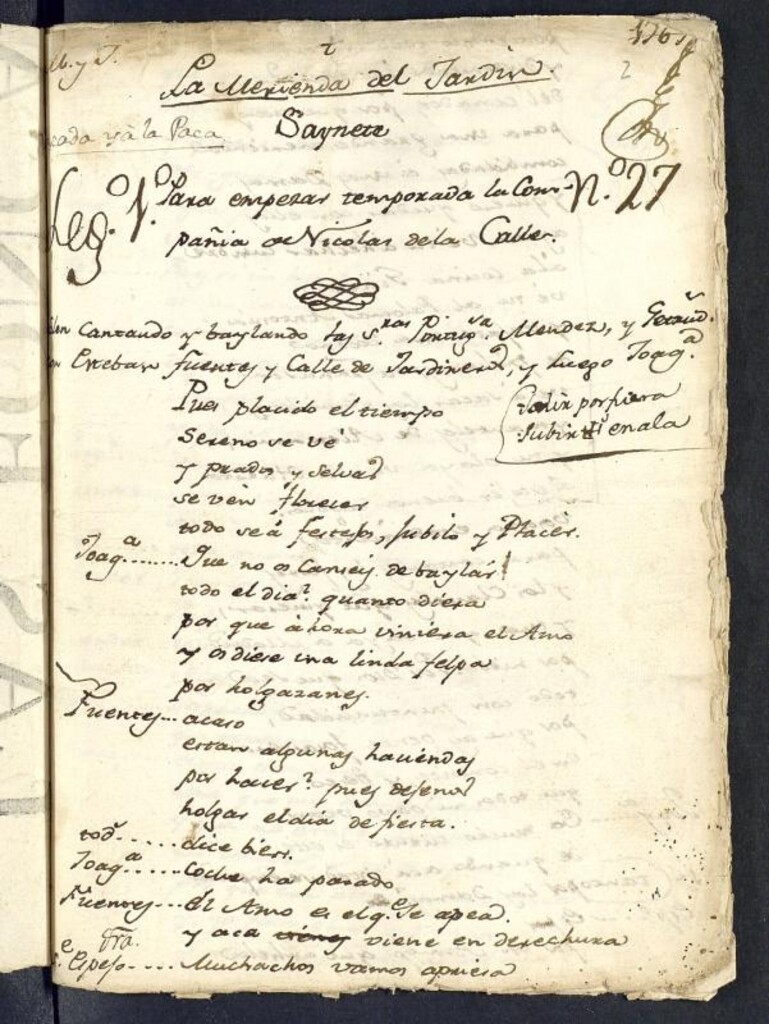 M. y T.
1767
La Merienda del Jardin.
2
cada y à la Paca
Saynete
Leg.º 1.º
Para empezar temporada la Com-
N.º 27
pañia de Nicolas de la Calle.
Salen Cantando y baylando las S.ras Portug.sa Mendez, y Getrud.s
con Esteban fuentes y Calle de Jardineros, y luego Joaq.a
Pues placido el tiempo
Salir por fuera
sereno se vé
subir
en ala
y prados y selvas
se ven florecer
todo seá festejos, jubilo y Placer.
Joaq.a ....... Que no os canseis de baylar
todo el dia? quanto diera
por que àhora viniera el Amo
y os diese una linda felpa
por holgazanes.
Fuentes ... acaso
estan algunas haciendas
por hacer? pues dejenos
holgar el dia de fiesta.
tod.s ...... dice bien.
Joaq.a ...... Coche ha parado
Fuentes ... El Amo es el q.e Se apea.
y aca viene en derechura
Espejo .... Muchachos vamos apriesa